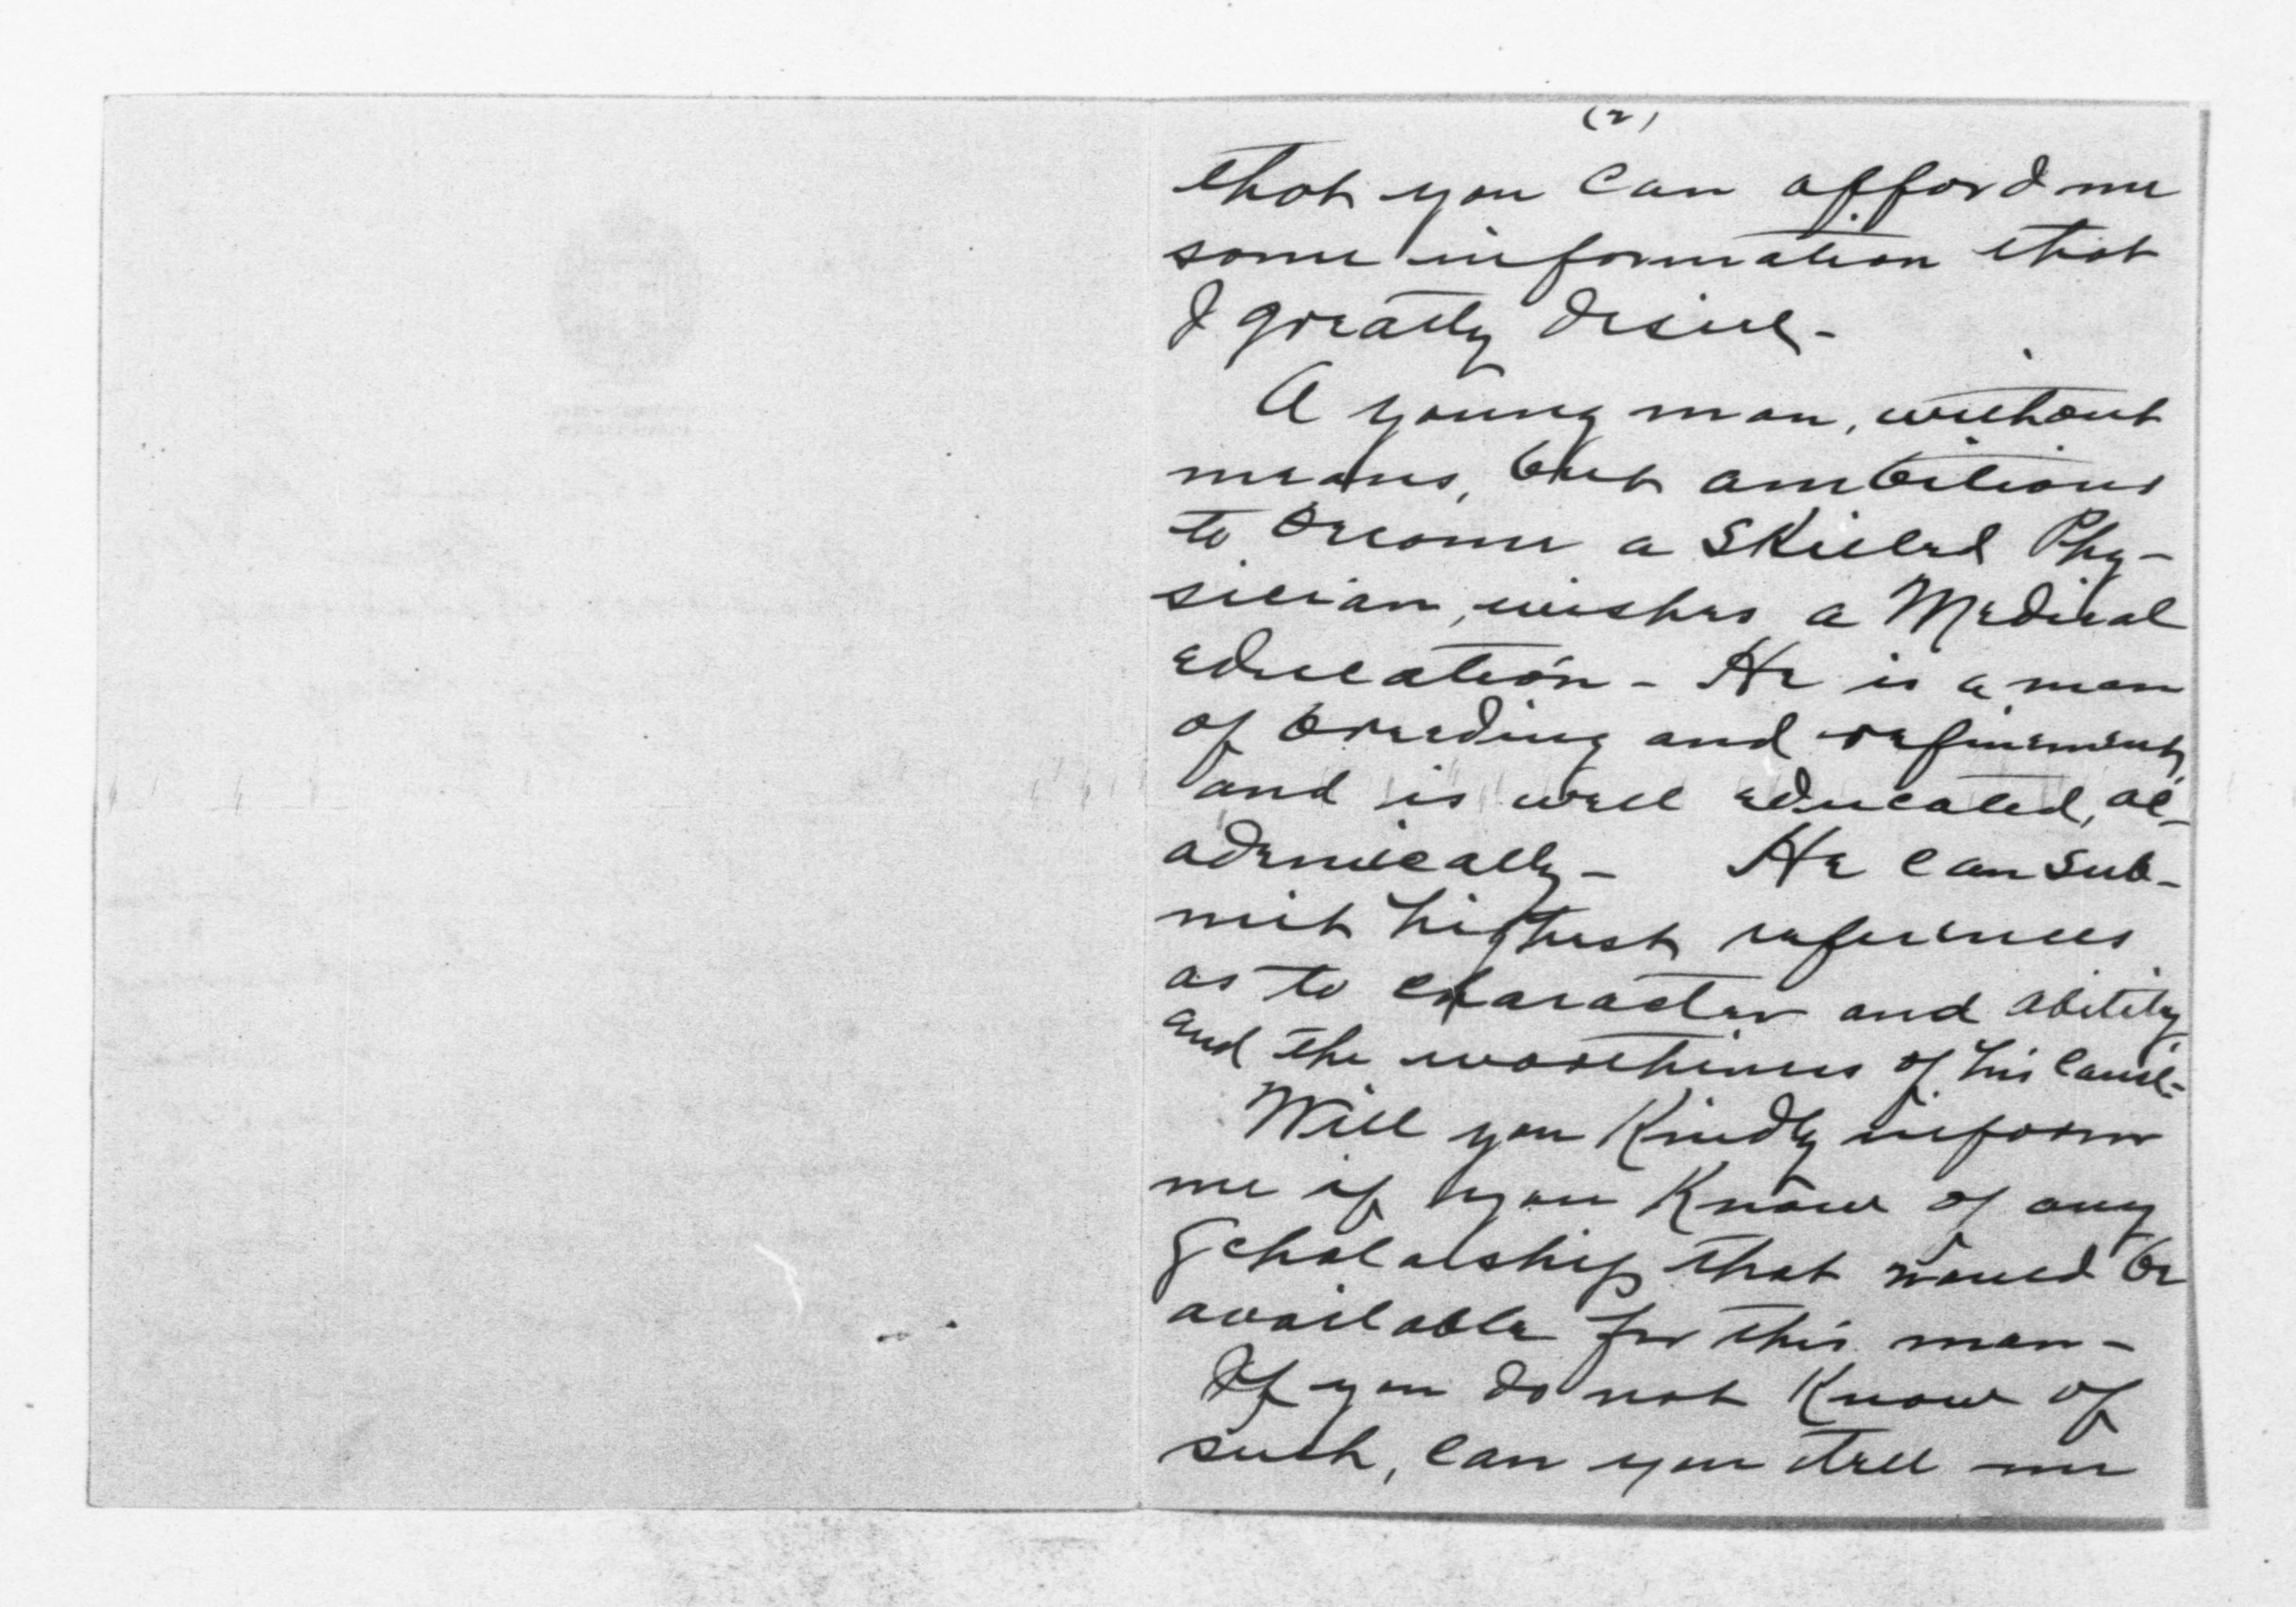 (2)
that you can afford me
some information that
I greatly desire -
A young man, without
means, but ambitious
to become a skilled Phy-
sician, wishes a Medical
education - He is a man
of breeding and refinement,
and is well educated, ac-
ademically - He can sub-
mit highest references
as to character and ability
and the worthiness of his cause -
Will you kindly inform
me if you know of any
Scholarship that would be
available for this man -
If you do not know of
such, can you tell me